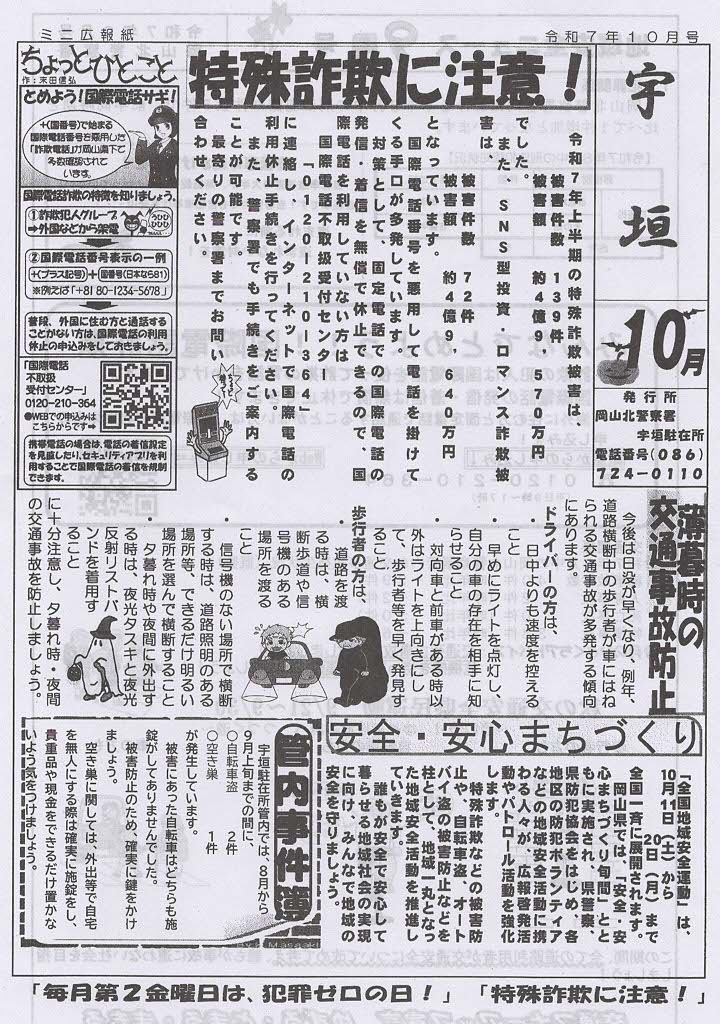 ミニ広報紙
令和7年10月号
宇垣
10月
発行所
岡山北警察署
宇垣駐在所
電話番号(086)
724-0110
特殊詐欺に注意!
令和7年上半期の特殊詐欺被害は
被害件数 139件
被害額 約4億9,570万円
でした。
また、SNS型投資・ロマンス詐欺被
害は、
被害件数 72件
被害額 約4億9,40万円
となっています。
国際電話番号を悪用して電話を掛けて
くる手口が多発しています。
対策として、固定電話での国際電話の
発信・着信を無償で休止できるので、国
際電話を利用していない方は
国際電話不取扱受付センター
「0120-210-364」
に連絡し、インターネットで国際電話の
利用休止手続きを行ってください。
また、警察署でも手続きをご案内する
ことが可能です。
最寄りの警察署までお問い
合わせください。
ちょっとひとこと
作:末田信弘
とめよう!国際電話サギ!
+(国番号)で始まる
国際電話番号を悪用した
「詐欺電話」が岡山県下で
多数確認されて
います。
国際電話詐欺の特徴を知りましょう。
①詐欺犯人グループ
➡外国などから架電
②国際電話番号表示の一例
+(プラス記号)+国番号(日本なら81)
※例えば「+81 80-1234-5678」
普段、外国に住む方と通話する
ことがない方は、国際電話の利用
休止の申込みをしておきましょう。
「国際電話
不取扱
受付センター」
0120-210-364
●WEBでの申込みは
こちらからです➡
携帯電話の場合は、電話の着信設定
を見直したり、セキュリティアプリを利
用することで国際電話の着信を規制
できます。
薄暮時の
交通事故防止
今後は日没が早くなり、例年、
道路横断中の歩行者が車にはね
られる交通事故が多発する傾向
にあります。
ドライバーの方は、
・ 日中よりも速度を控える
こと
・ 早めにライトを点灯し、
自分の車の存在を相手に知
らせること
・ 対向車と前車がある時以
外はライトを上向きにし
て、歩行者等を早く発見す
ること
歩行者の方は、
・ 道路を渡
る時は、横
断歩道や信
号機のある
場所を渡る
こと
・ 信号機のない場所で横断
する時は、道路照明のある
場所等、できるだけ明るい
場所を選んで横断すること
・ 夕暮れ時や夜間に外出す
る時は、夜光タスキと夜光
反射リストバ
ンドを着用す
ること
に十分注意し、夕暮れ時・夜間
の交通事故を防止しましょう。
安全・安心まちづくり
「全国地域安全運動」は、
10月11日(土)から
20日(月)まで
全国一斉に展開されます。
岡山県では、「安全・安
心まちづくり旬間」とと
もに実施され、県警察、
県防犯協会をはじめ、各
地区の防犯ボランティア
などの地域安全活動に携
わる人々が、広報啓発活
動やパトロール活動を強化
します。
特殊詐欺などの被害防
止や、自転車盗、オート
バイ盗の被害防止などを
柱として、地域一丸となっ
た地域安全活動を推進し
ていきます。
誰もが安全で安心して
暮らせる地域社会の実現
に向け、みんなで地域の
安全を守りましょう
管内事件簿
宇垣駐在所管内では、8月から
9月上旬までの間に、
○自転車盗 2件
○空き巣 1件
が発生しています。
被害にあった自転車はどちらも施
錠がしてありませんでした。
被害防止のため、確実に鍵をかけ
ましょう。
空き巣に関しては、外出等で自宅
を無人にする際は確実に施錠をし、
貴重品や現金をできるだけ置かな
いよう気をつけましょう。
「毎月第2金曜日は、犯罪ゼロの日!」 「特殊詐欺に注意!」